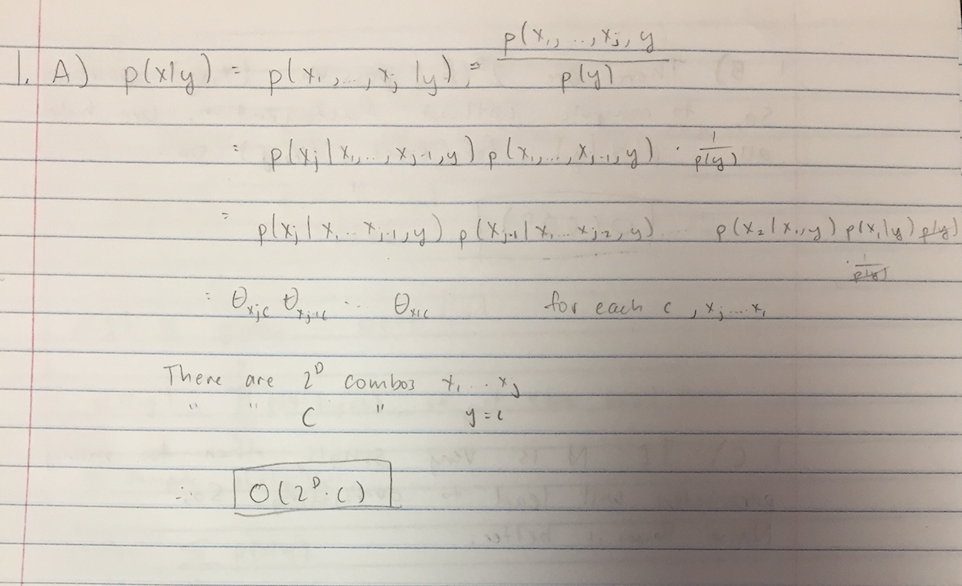 1. A) p(x|y) = p(x₁,...,xⱼ|y) = p(x₁,...,xⱼ,y / p(y)
= p(xⱼ|x₁,...,xⱼ₋₁,y) p(x₁,...,xⱼ₋₁,y) · 1/p(y)
= p(xⱼ|x₁...xⱼ₋₁,y) p(xⱼ₋₁|x₁...xⱼ₋₂,y) ... p(x₂|x₁,y) p(x₁|y) p(y)
· 1/p(y)
= θₓⱼc θₓⱼ₋₁c ... θₓ₁c for each c, xⱼ...x₁
There are 2ᴰ combos x₁...xⱼ
" " C " y=c
∴ O(2ᴰ·C)